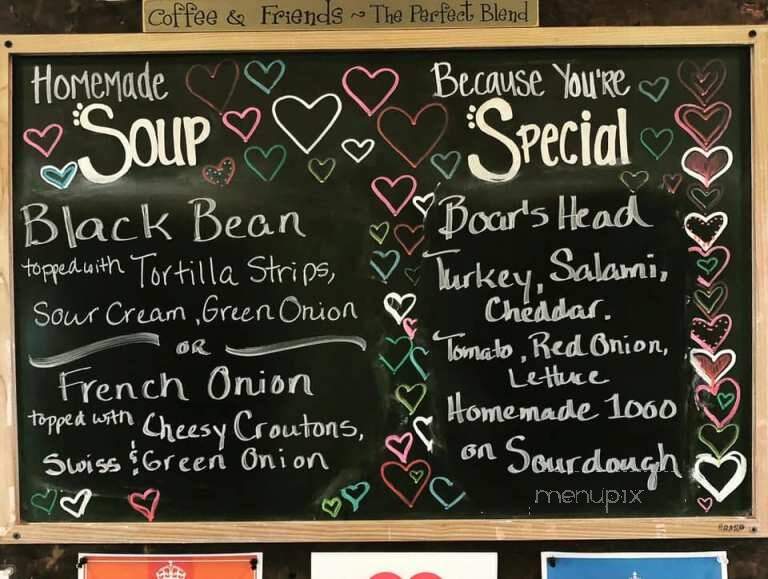 Coffee & Friends ~ The Perfect Blend
Homemade
Soup
Black Bean
topped with Tortilla Strips,
Sour Cream, Green Onion
OR
French Onion
topped with Cheesy Croutons,
Swiss & Green Onion
Because You're
Special
Boar's Head
Turkey, Salami,
Cheddar.
Tomato, Red Onion,
Lettuce
Homemade 1000
on Sourdough
menupix